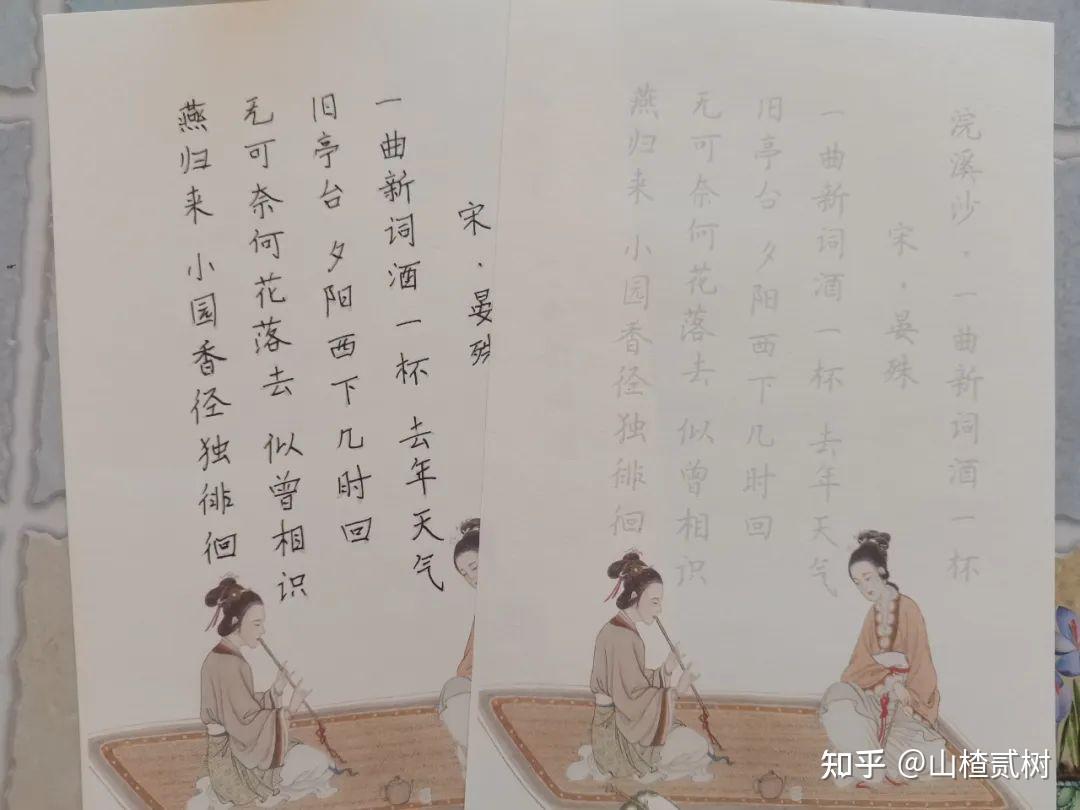 宋·晏殊
一曲新词酒一杯 去年天气
旧亭台 夕阳西下几时回
无可奈何花落去 似曾相识
燕归来 小园香径独徘徊
浣溪沙·一曲新词酒一杯
宋·晏殊
一曲新词酒一杯 去年天气
旧亭台 夕阳西下几时回
无可奈何花落去 似曾相识
燕归来 小园香径独徘徊
知乎 @山楂贰树